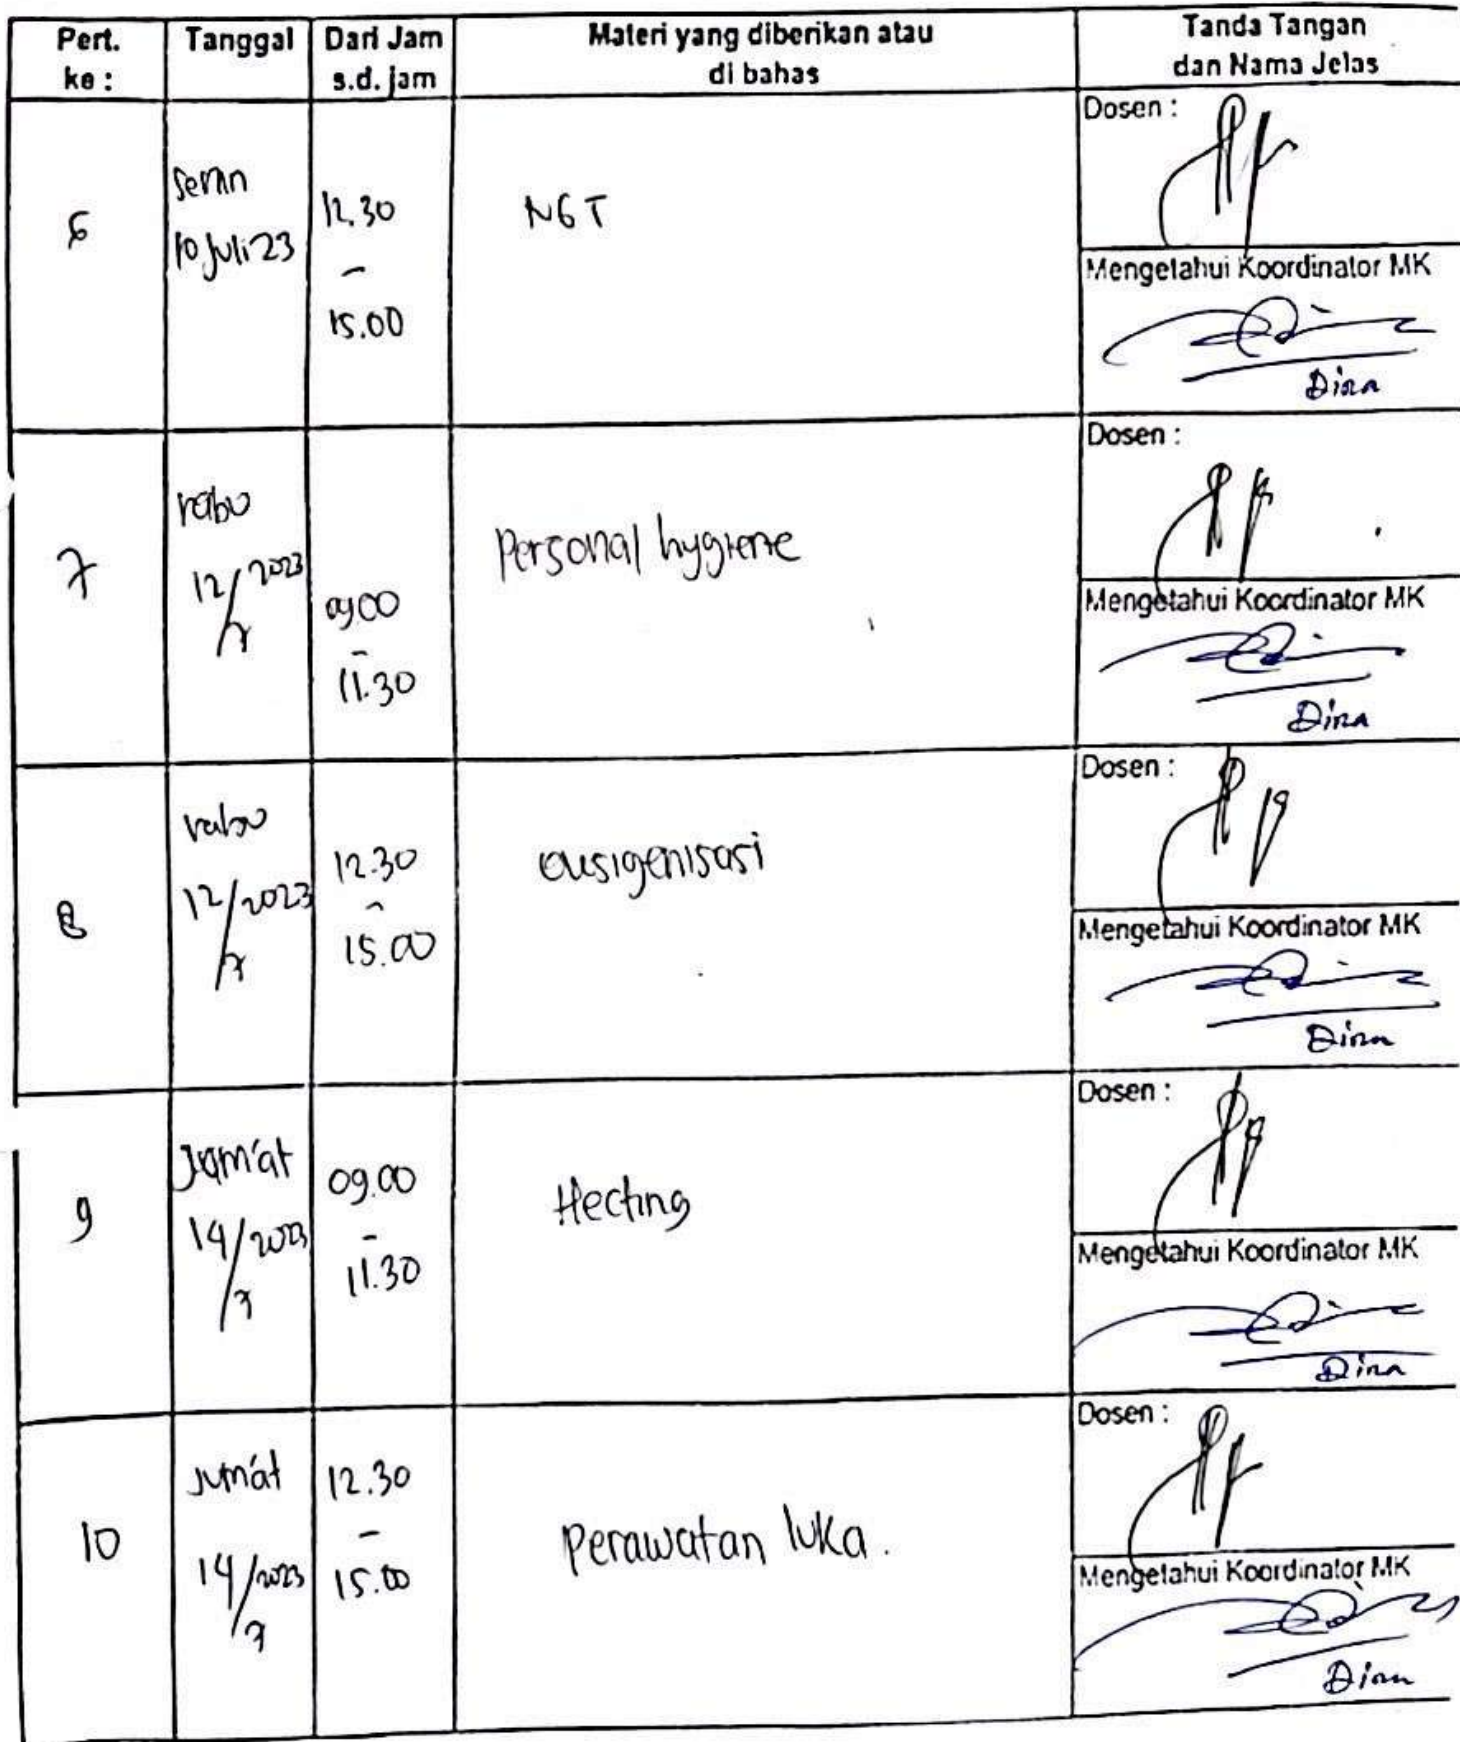 Pert. ke :
Tanggal
Dari Jam s.d. jam
Materi yang diberikan atau di bahas
Tanda Tangan dan Nama Jelas
6
Senin
10 Juli 23
12.30
-
15.00
NGT
Dosen :
Mengetahui Koordinator MK
Dina
7
rabu
12/7 2023
09.00
-
11.30
Personal hygiene
Dosen :
Mengetahui Koordinator MK
Dina
8
rabu
12/7 2023
12.30
-
15.00
Oksigenisasi
Dosen :
Mengetahui Koordinator MK
Dina
9
Jum'at
14/7 2023
09.00
-
11.30
Hecting
Dosen :
Mengetahui Koordinator MK
Dina
10
Jum'at
14/7 2023
12.30
-
15.00
Perawatan luka.
Dosen :
Mengetahui Koordinator MK
Dina